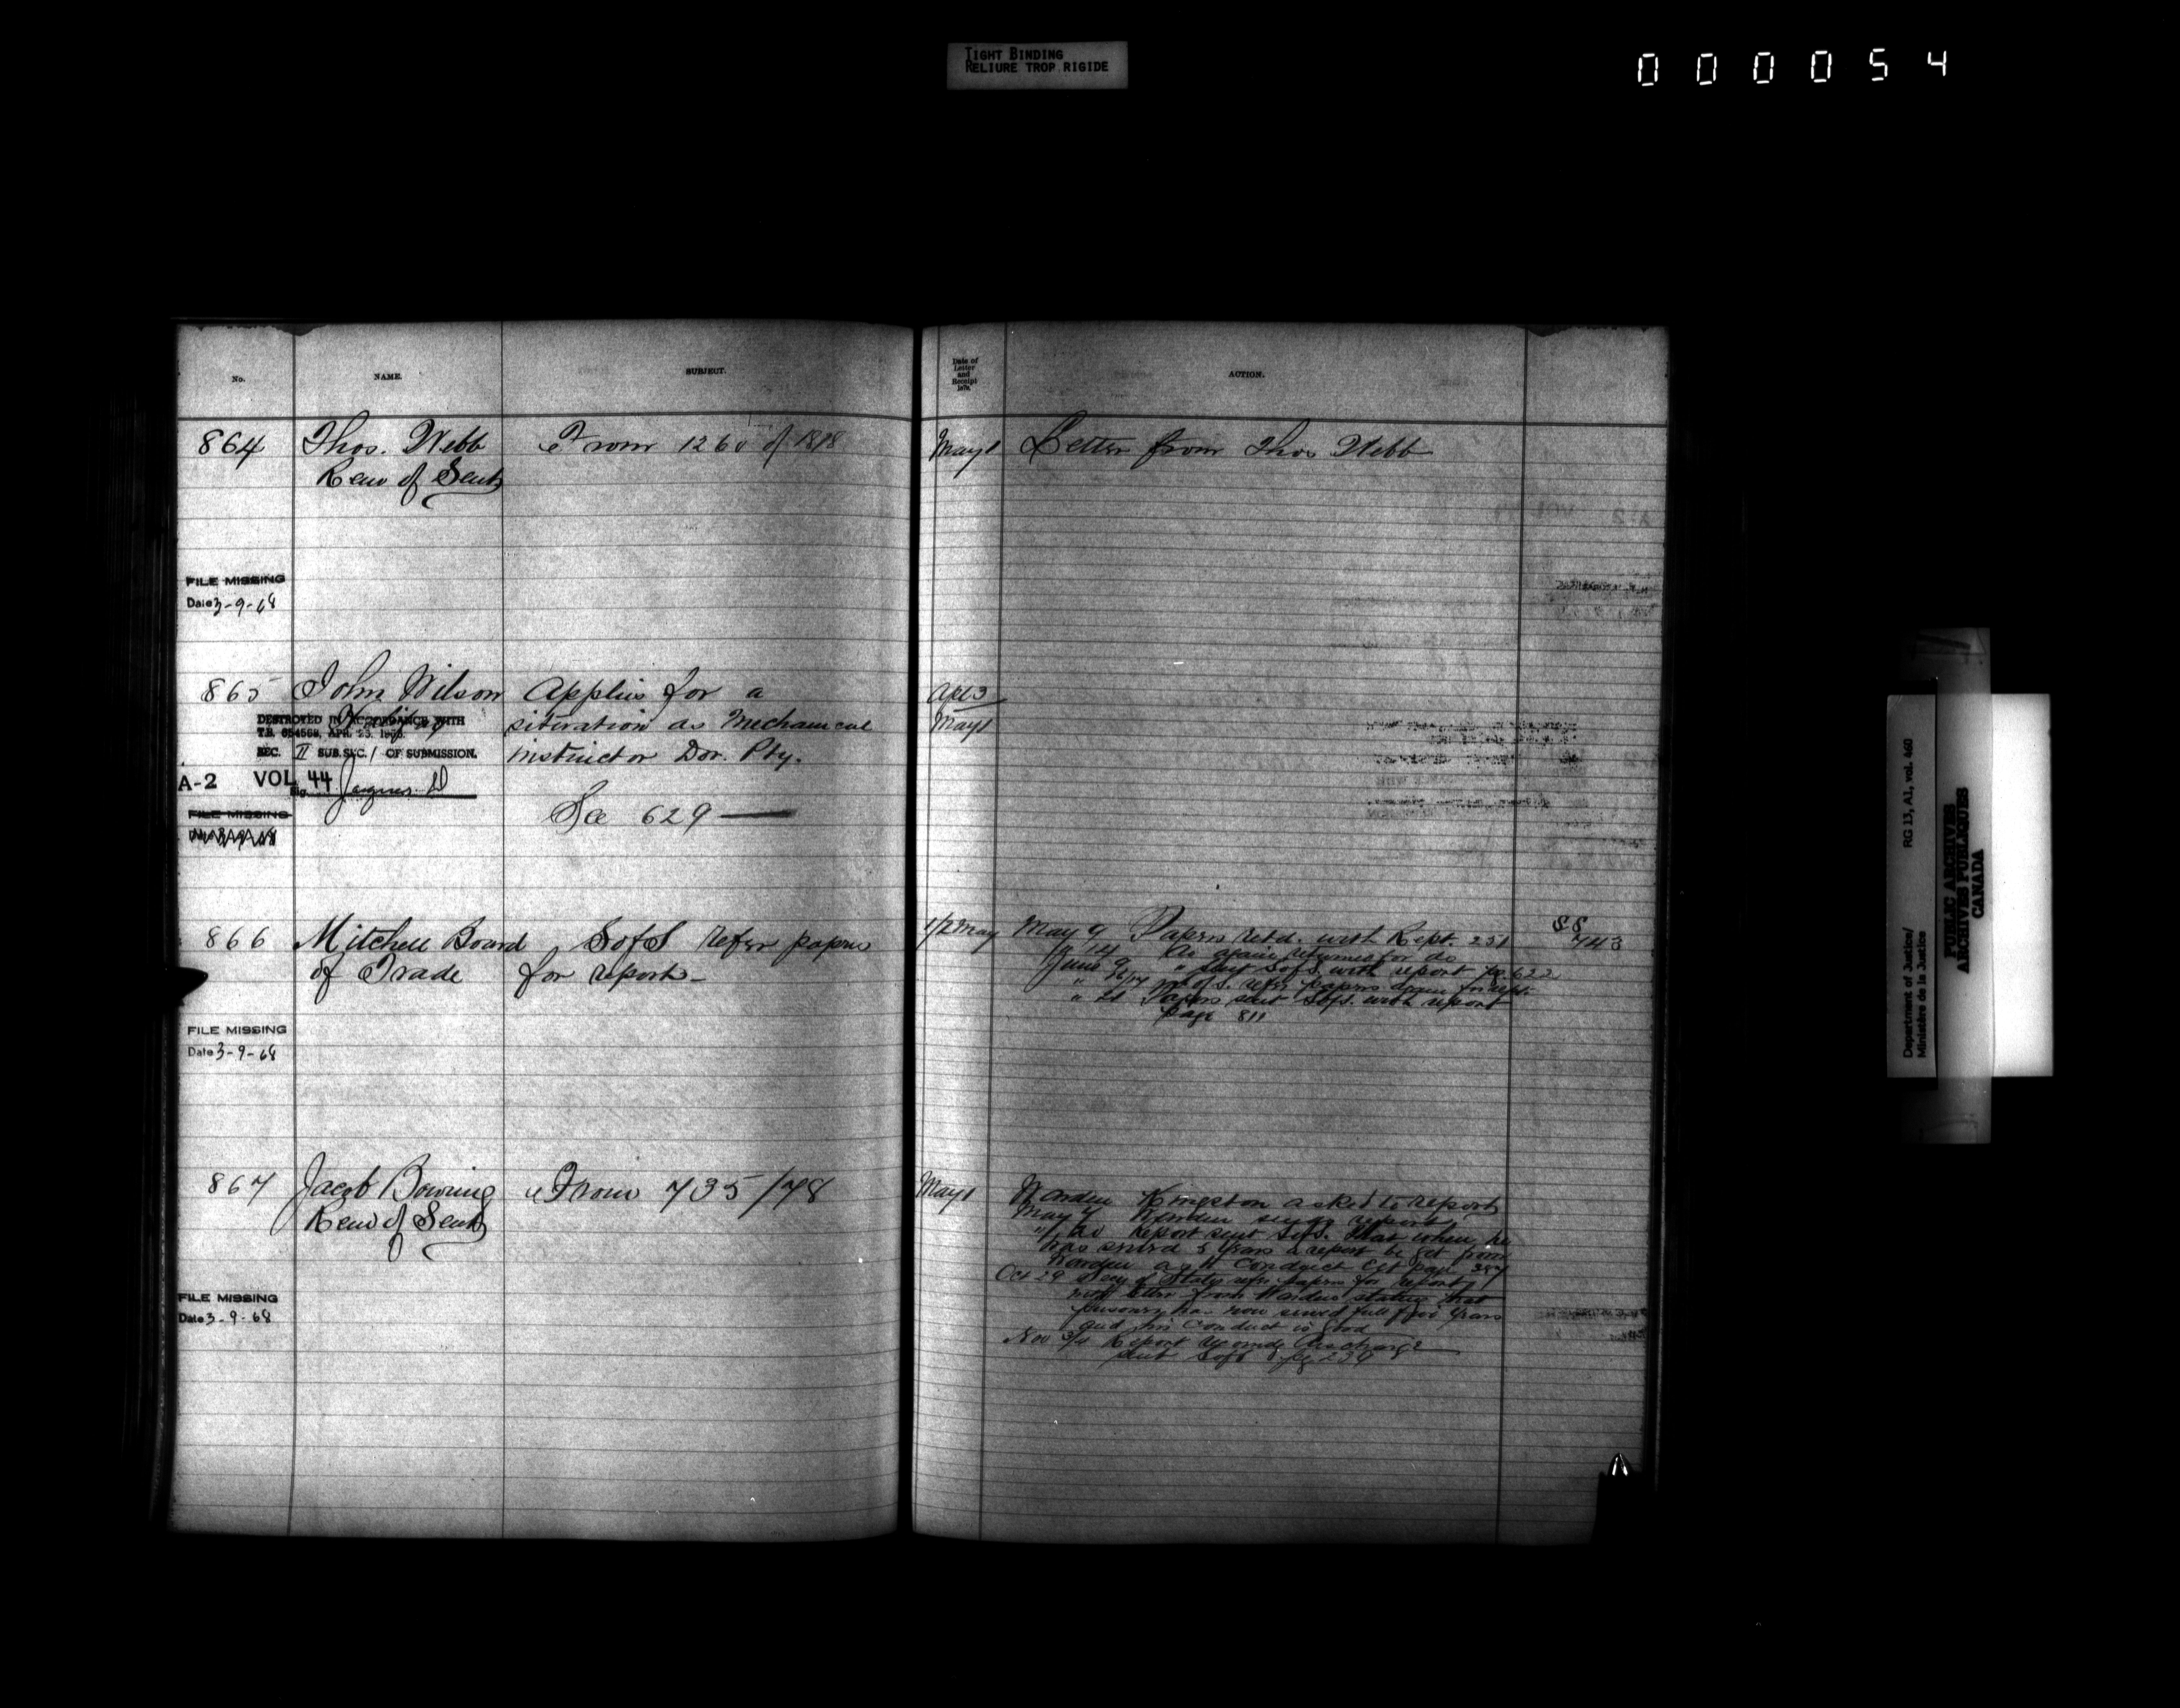 TIGHT BINDING
RELIURE TROP RIGIDE
000054
No.
NAME.
SUBJECT.
Date of
Letter
and
Receipt
1879.
ACTION.
864
Thos. Webb
Rem of Sent
From 1260 of 1878
May 1
Letter from Thos Webb
FILE MISSING
Date 3-9-68
865
John Wilson
Halifax
Applies for a
situation as Mechanical
instructor Dor. Pty.
See 629 —
Apl 3
May 1
DESTROYED IN ACCORDANCE WITH
T.B. 654568, APR. 23. 1966.
SEC. II SUB. SEC. 1 OF SUBMISSION.
A-2 VOL 44
Sig.
FILE MISSING
866
Mitchell Board
of Trade
S of S refer papers
for report —
1/2 May
May 9 Papers retd. with Rept. 251
" 14 Do again returned for do
June 9 " sent S of S. with report pg. 622
" S. refer papers again for rept.
" 21 Papers sent S of S. with report
page 811
SS
743
FILE MISSING
Date 3-9-68
867
Jacob Bowring
Rem of Sent
From 735/78
May 1
Warden Kingston asked to report
May Warden sends report
" 20 Report sent S of S. that when he
has served 5 years a report be got from
Warden as to Conduct &c page 357
Oct 29 Secy of State refer papers for report
with letter from Warden stating that
prisoner has now served full five years
and his conduct is good
Nov 3/4 Report recomdg discharge
sent S of S pg 239
FILE MISSING
Date 3-9-68
Department of Justice/
Ministère de la Justice
RG 13, A1, vol. 460
PUBLIC ARCHIVES
ARCHIVES PUBLIQUES
CANADA